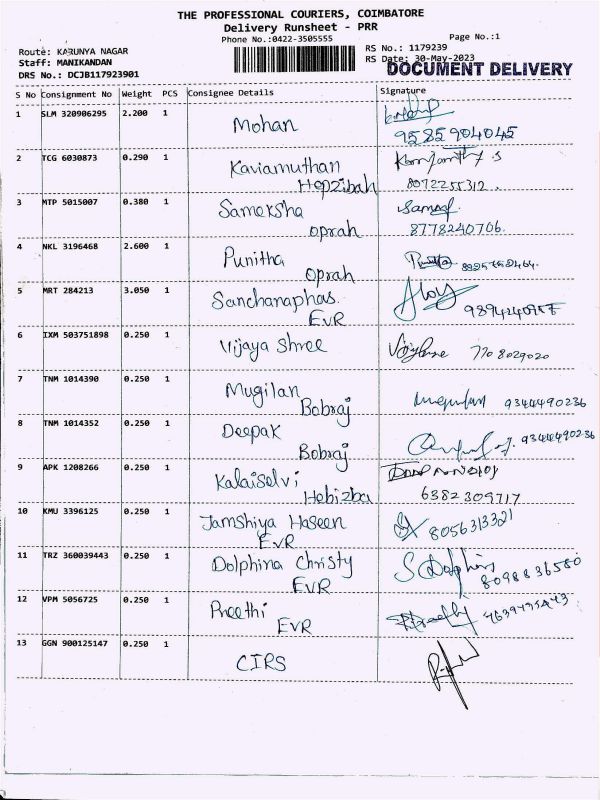 THE PROFESSIONAL COURIERS, COIMBATORE
Delivery Runsheet - PRR
Phone No.:0422-3505555
Page No.:1
Route: KARUNYA NAGAR
RS No.: 1179239
Staff: MANIKANDAN
RS Date: 30-May-2023
DRS No.: DCJB117923901
DOCUMENT DELIVERY
S No Consignment No Weight PCS Consignee Details Signature
1 SLM 320906295 2.200 1 Mohan
9585904045
2 TCG 6030873 0.290 1 Kaviamuthan
Hepzibah 8072255312.
3 MTP 5015007 0.380 1 Sameksha
oprah 8778240706.
4 NKL 3196468 2.600 1 Punitha
Oprah
5 MRT 284213 3.050 1 Sanchanaphas.
EvR
6 IXM 503751898 0.250 1 Vijaya Shree 7708029020
7 TNM 1014390 0.250 1 Mugilan
Bobraj 9344490236
8 TNM 1014352 0.250 1 Deepak 9344490236
Bobraj
9 APK 1208266 0.250 1 Kalaiselvi
Hebizba 6382309717
10 KMU 3396125 0.250 1 Jamshiya Haseen 8056313321
EvR
11 TRZ 360039443 0.250 1 Dolphina Christy S Dolphin
EVR 8098836580
12 VPM 5056725 0.250 1 Preethi
EvR
13 GGN 900125147 0.250 1 CIRS